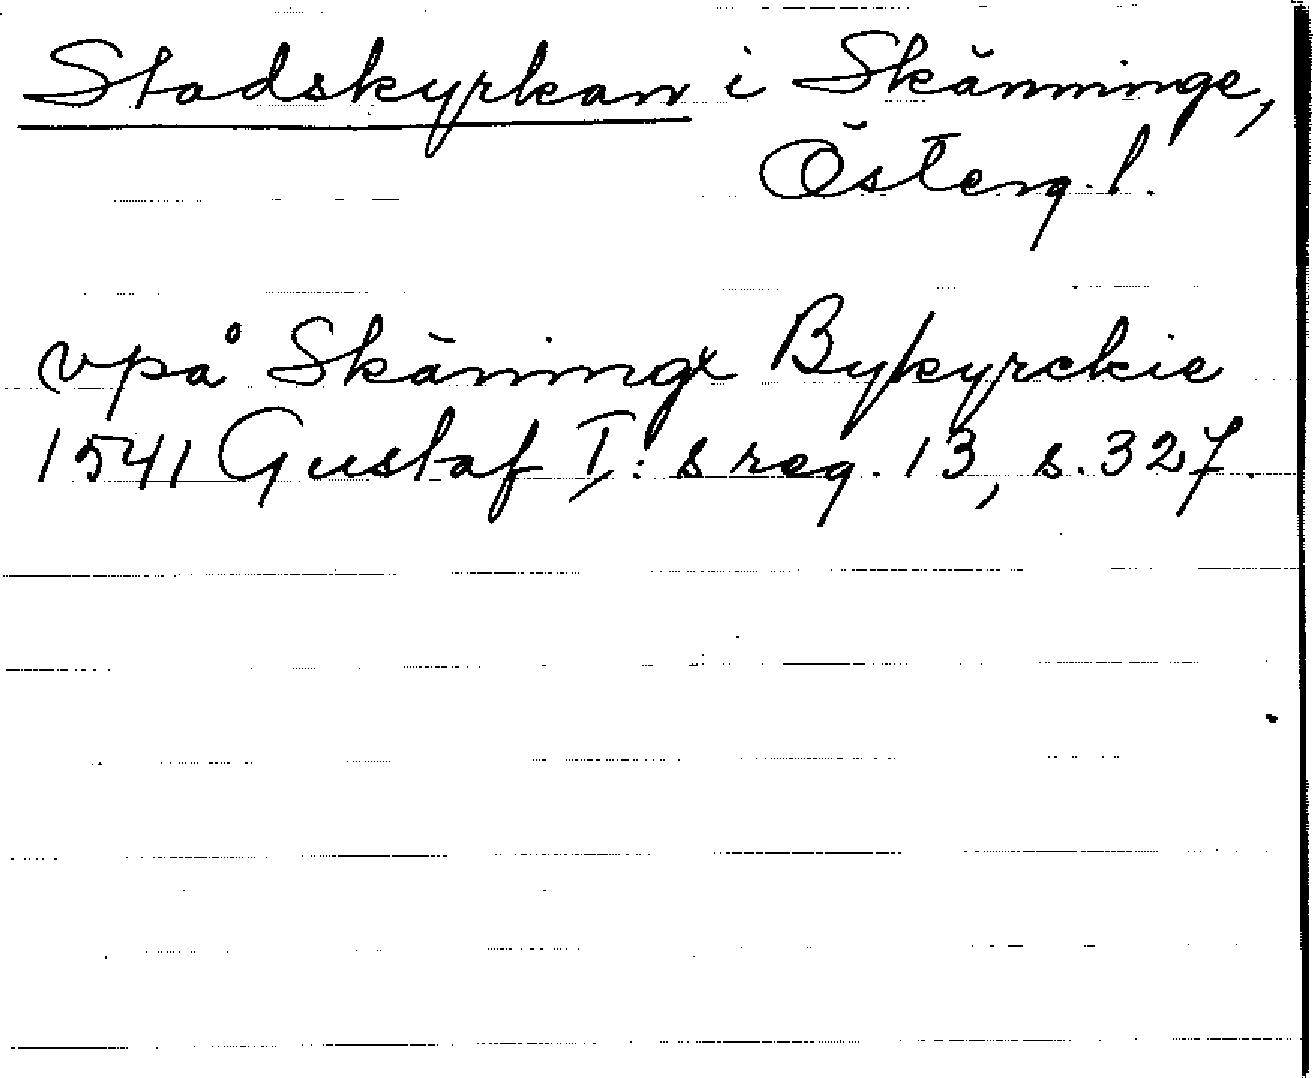 Stadskyrkan i Skänninge,
Österg.l.
vpå Skäningx Bykyrckie
1541 Gustaf I:s reg. 13, s. 327.